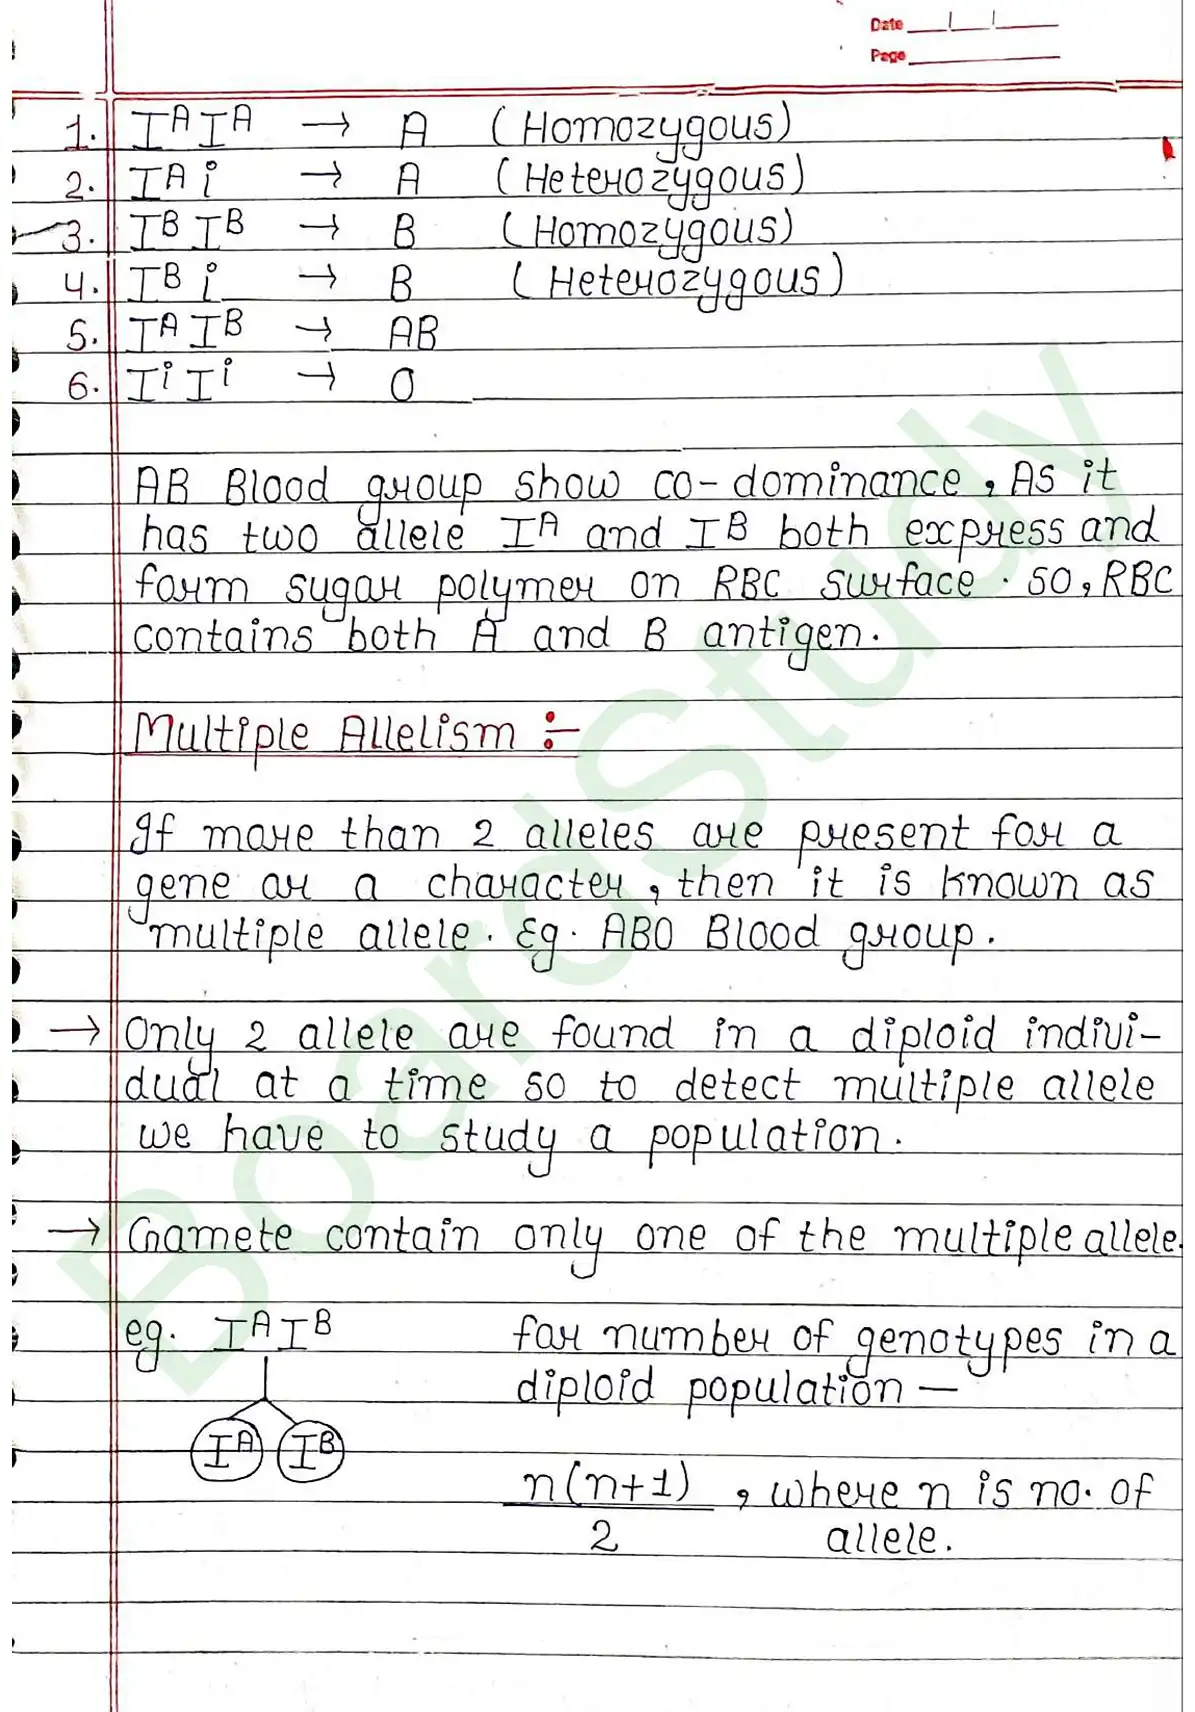 Date
Page
1. I^A I^A → A (Homozygous)
2. I^A i → A (Heterozygous)
3. I^B I^B → B (Homozygous)
4. I^B i → B (Heterozygous)
5. I^A I^B → AB
6. I^i I^i → O
AB Blood group show co-dominance, As it
has two allele I^A and I^B both express and
form sugar polymer on RBC surface. so, RBC
contains both A and B antigen.
Multiple Allelism :-
If more than 2 alleles are present for a
gene or a character, then it is known as
multiple allele. Eg. ABO Blood group.
→ Only 2 allele are found in a diploid indivi-
dual at a time so to detect multiple allele
we have to study a population.
→ Gamete contain only one of the multiple allele.
eg. I^A I^B
I^A I^B
for number of genotypes in a
diploid population —
n(n+1)
2
, where n is no. of
allele.
BoardStudy